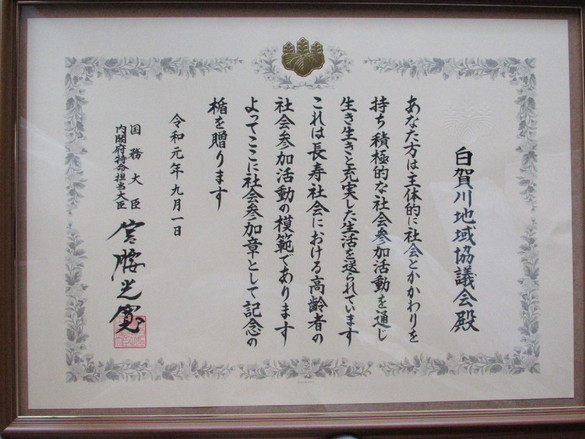 白賀川地域協議会殿
あなた方は主体的に社会とかかわりを
持ち積極的な社会参加活動を通し
生き生きと充実した生活を送られています
これは長寿社会における高齢者の
社会参加活動の模範であります
よってここに社会参加章として記念の
楯を贈ります
令和元年九月一日
国務大臣
内閣府特命担当大臣
宮腰光寛